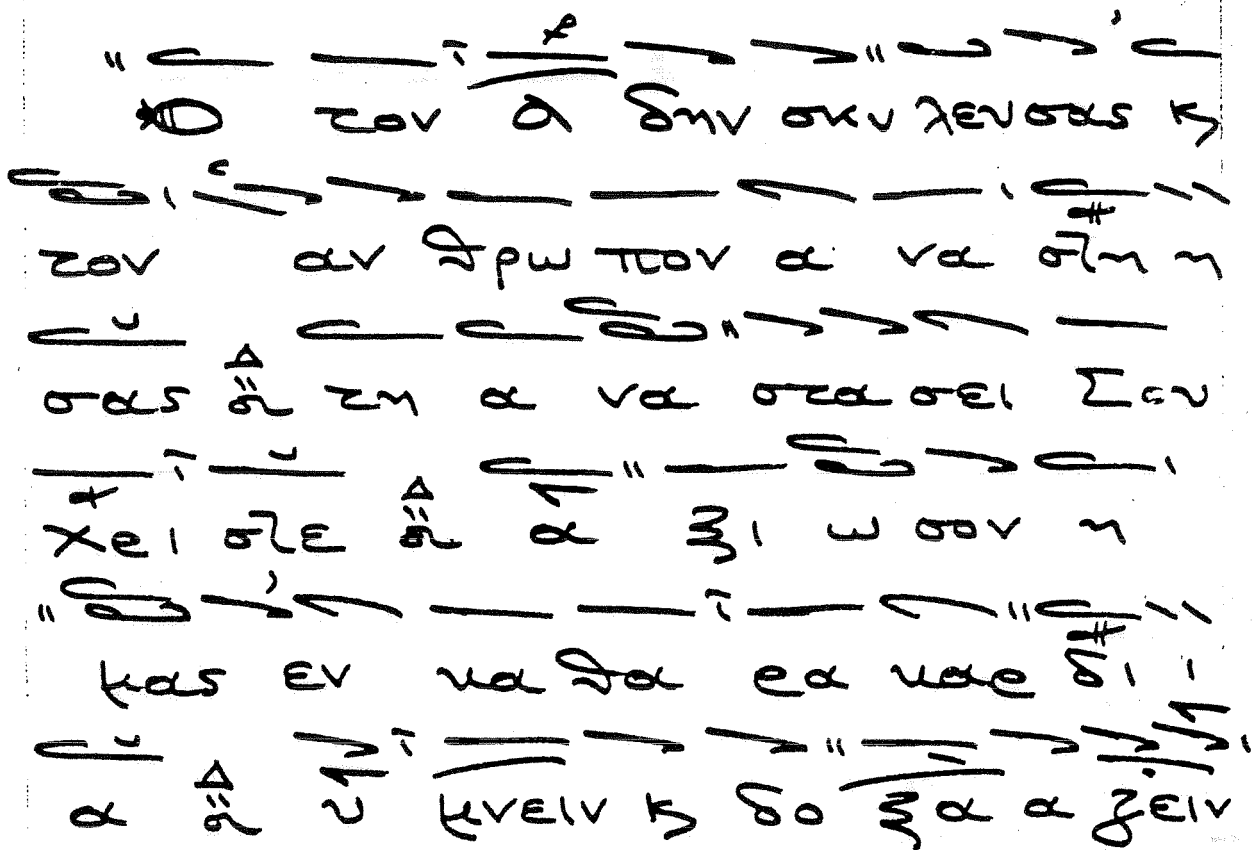 Ο τον α δην σκυ λευσας ϗ
τον αν θρω πον α να στη η
σας τη α να στα σει Σου
χει στε α ξι ω σον η
μας εν κα θα ρα καρ δι ι
α υ μνειν ϗ δο ξα α ζειν